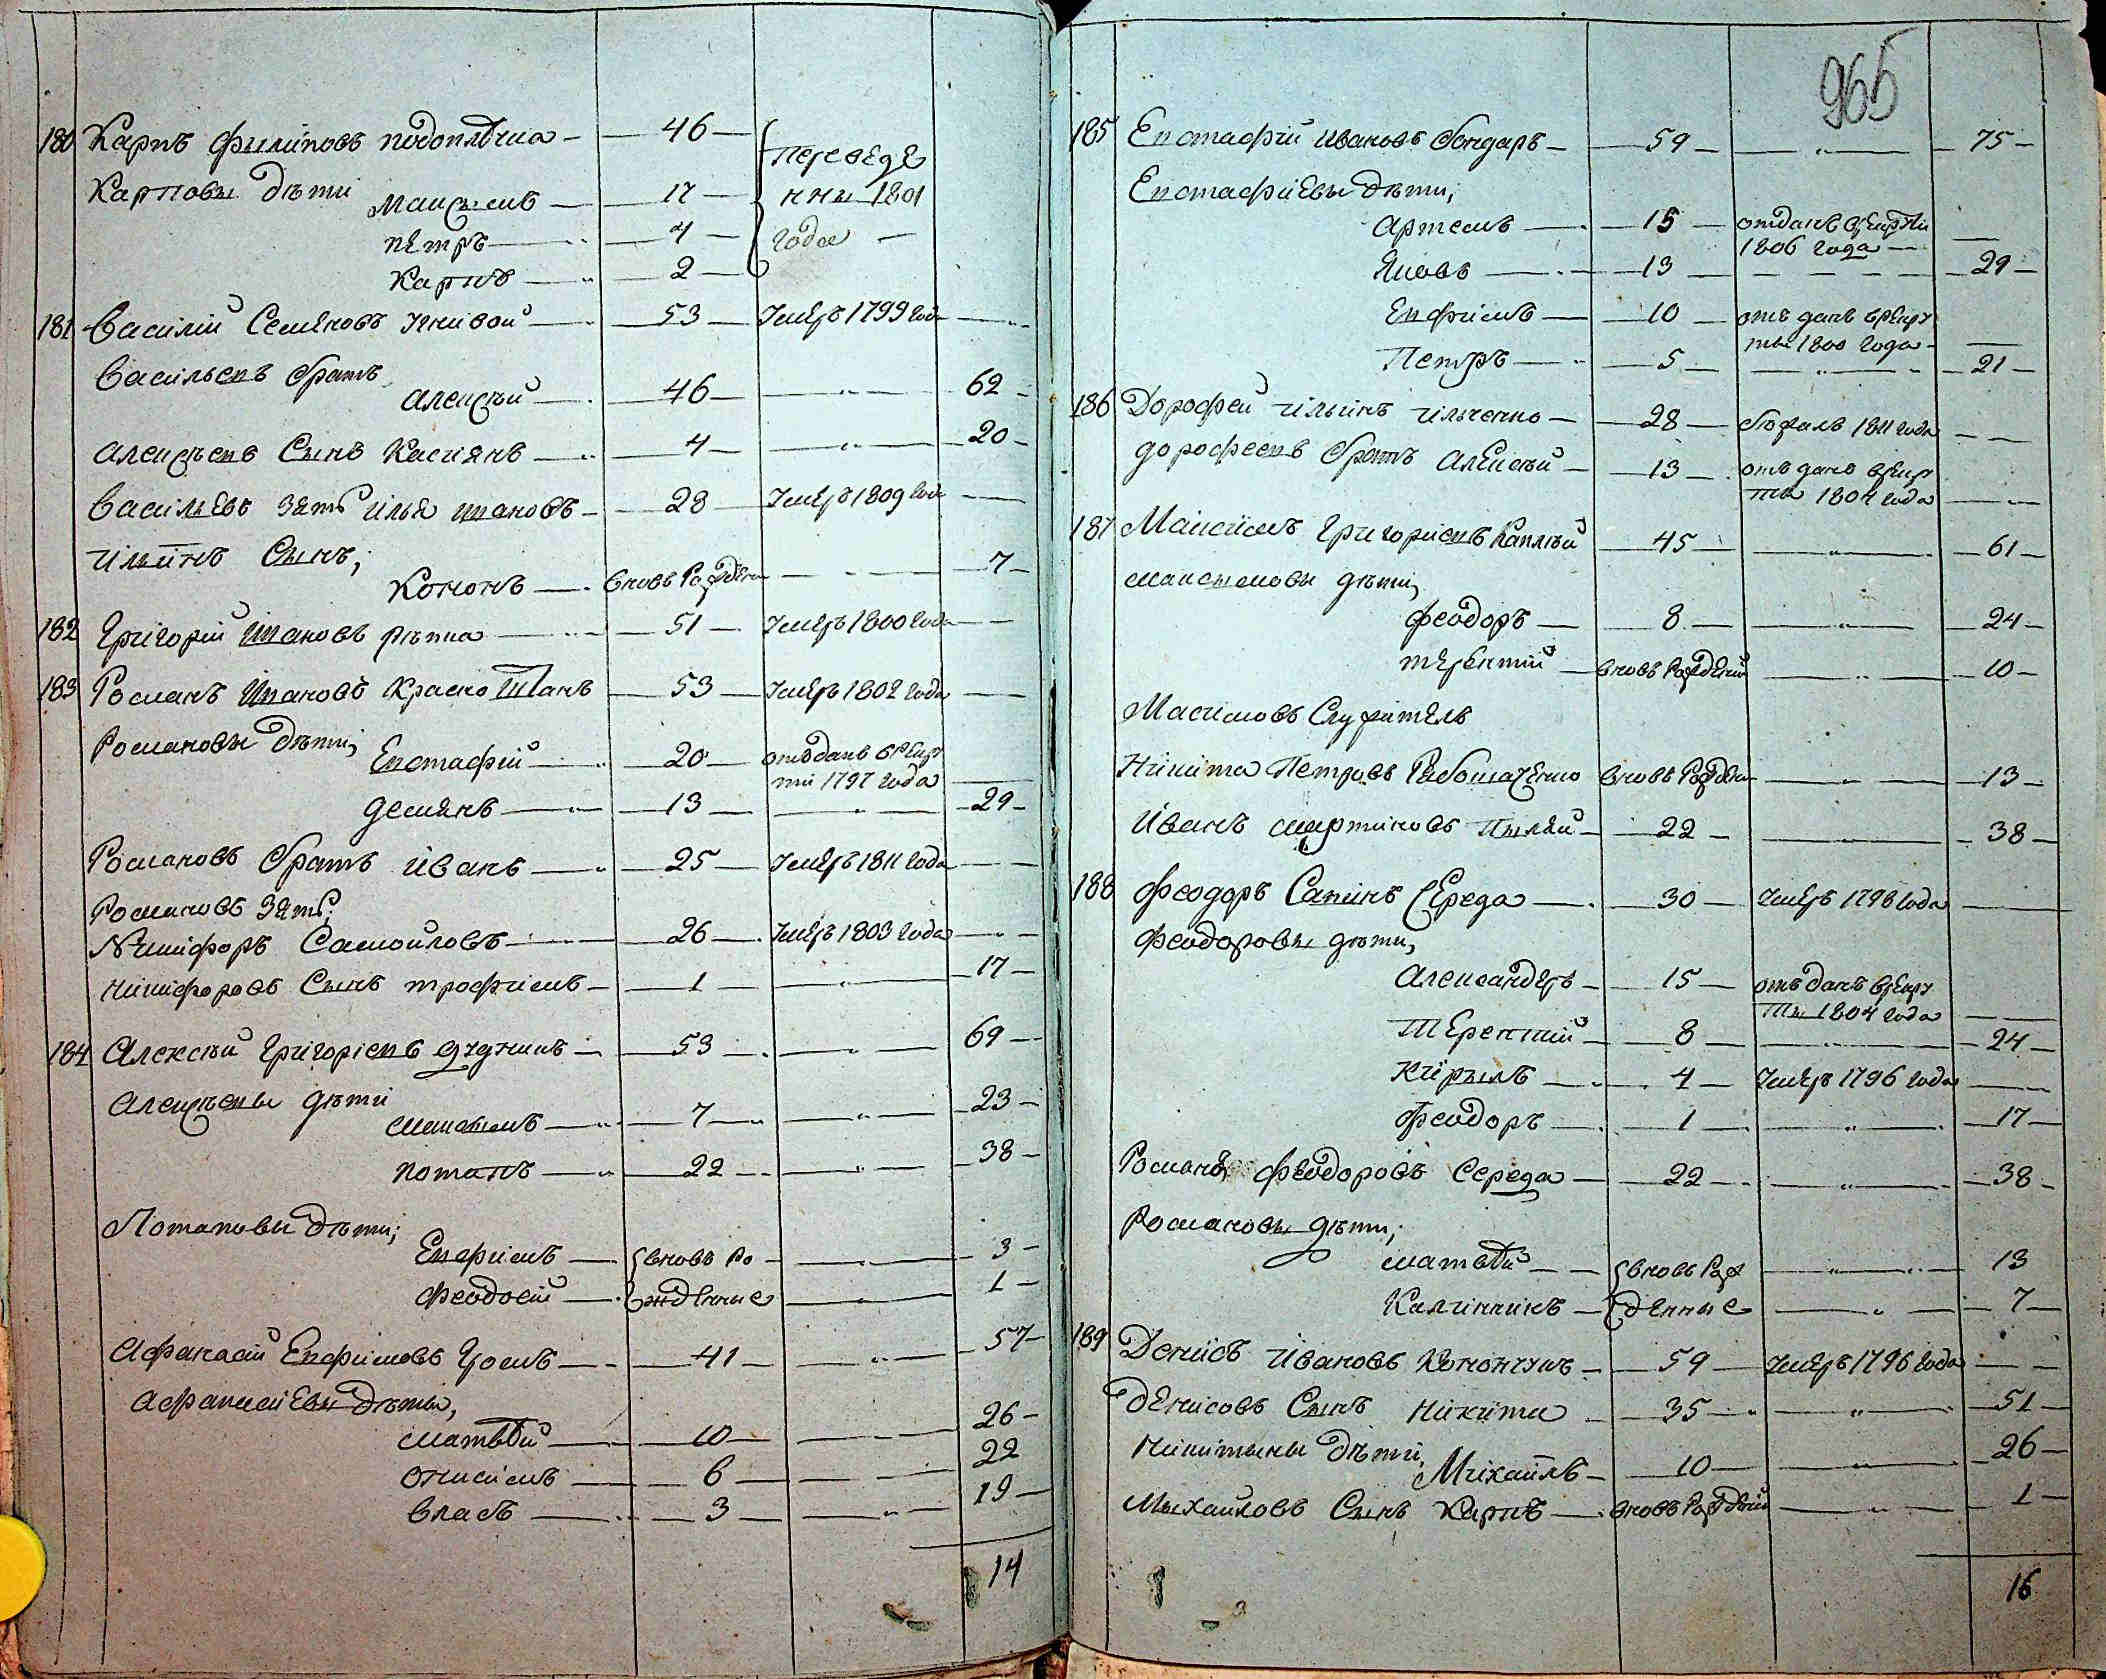 180 Карпъ Филиповъ подоплѣчка — 46 — переведе
Карповы дѣти Максымъ — 17 — нны 1801
петръ — 7 — года —
Карпъ — 2 —
181 Василій Семѣновъ — 53 — Умеръ 1799 года —
Васильевъ братъ
алексѣй — 46 — " — 62 —
алексѣевъ Сынъ Касиянъ — 4 — " — 20 —
Васильевъ Зять илья ивановъ — 28 — Умеръ 1809 года —
ильинъ Сынъ;
Кононъ — вновь Рожденъ — 7 —
182 Григорій ивановъ рѣпка — 51 — Умеръ 1800 года —
183 Романъ ивановъ красноштанъ — 53 — Умеръ 1802 года —
Романовы дѣти;
Евстафій — 20 — отъданъ врекру
ти 1797 года —
демянъ — 13 — " — 29 —
Романовъ братъ иванъ — 25 — Умеръ 1811 года —
Романовъ Зять;
Никифоръ Самойловъ — 26 — Умеръ 1803 года —
никифоровъ Сынъ трофимъ — 1 — " — 17 —
184 Алексѣй григоріевъ дудникъ — 53 — " — 69 —
алексѣевы дѣти
максымъ — 7 — " — 23 —
потапъ — 22 — " — 38 —
Потаповы дѣти;
Евфимъ — вновь Ро — " — 3 —
феодосій — жденные — " — 1 —
Афанасій Евфимовъ — 41 — " — 57 —
афанасіевы дѣты,
матвѣй — 10 — 26 —
онисимъ — 6 — 22
власъ — 3 — " — 19 —
14
965
185 Евстафій ивановъ бондарь — 59 — " — 75 —
Евстафіевы дѣти;
артемъ — 15 — отданъ врекрти
1806 года —
яковъ — 13 — — 29 —
Евфимъ — 10 — отъ данъ врекру
ты 1800 года —
Петръ — 5 — " — 21 —
186 Дорофей ильинъ ильченко — 28 — бѣжалъ 1811 года — —
дорофеевъ братъ алексѣй — 13 — отъ данъ врекр
ты 1804 года — —
187 Максимъ григориевъ — 45 — " — 61 —
максымовы дѣти,
феодоръ — 8 — " — 24 —
терентій — вновь рожденій — " — 10 —
Масимовъ Служитель
Никита Петровъ — вновь Рожден — " — 13 —
Иванъ мартиновъ — 22 — " — 38 —
188 Феодоръ Савинъ Середа — 30 — Умеръ 1796 года —
Феодоровы дѣти,
Александеръ — 15 — отъ данъ врекру
ты 1804 года —
терентий — 8 — " — 24 —
Кирылъ — 4 — Умеръ 1796 года —
Феодоръ — 1 — " — 17 —
Романъ Феодоровъ Середа — 22 — " — 38 —
Романовы дѣти;
матвѣй — вновь Рож — " — 13
Калинникъ — денные — " — 7 —
189 Денисъ ивановъ — 59 — Умеръ 1796 года — —
денисовъ Сынъ никита — 35 — " — 51 —
никитины дѣти,
Михаилъ — 10 — " — 26 —
Мыхаиловъ Сынъ Карпъ — вновь Рожденій — " — 1 —
16